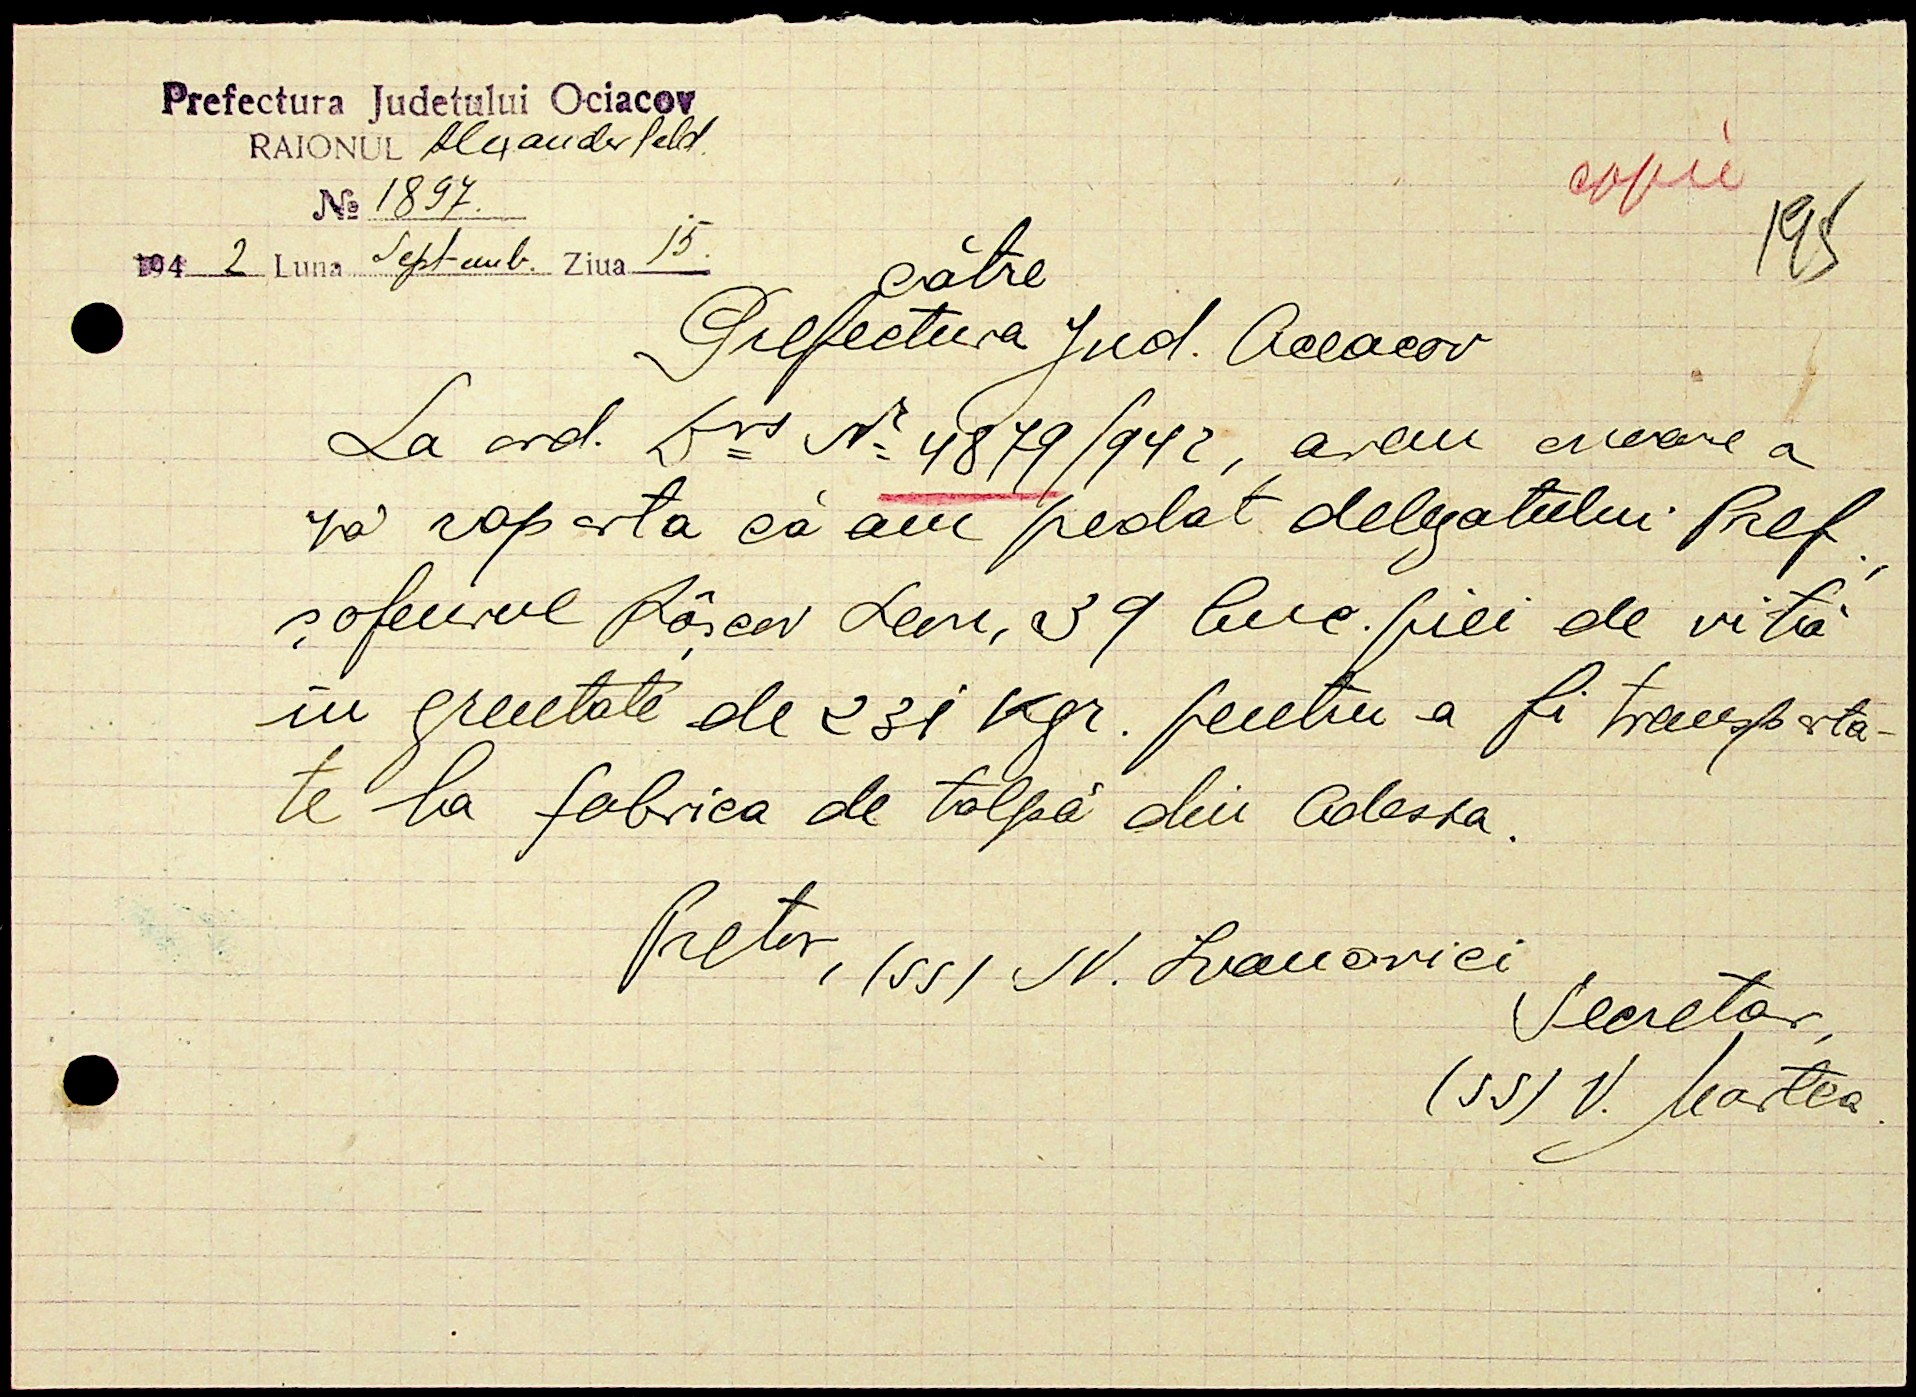 Prefectura Judetului Ociacov
RAIONUL Alexanderfeld.
№ 1897.
194 2 Luna Septemb. Ziua 15.
copie
195
către
Prefectura Jud. Oceacov
La ord. Dvs Nr. 4879/942, avem onoare a
vă raporta că am predat delegatului Pref.,
șoferul Râșcov Leon, 39 buc. piei de vită
în greutate de 231 Kgr. pentru a fi transporta-
te la fabrica de talpă din Odessa.
Pretor, (ss) N. Ivanovici
Secretar,
(ss) V. Martea.